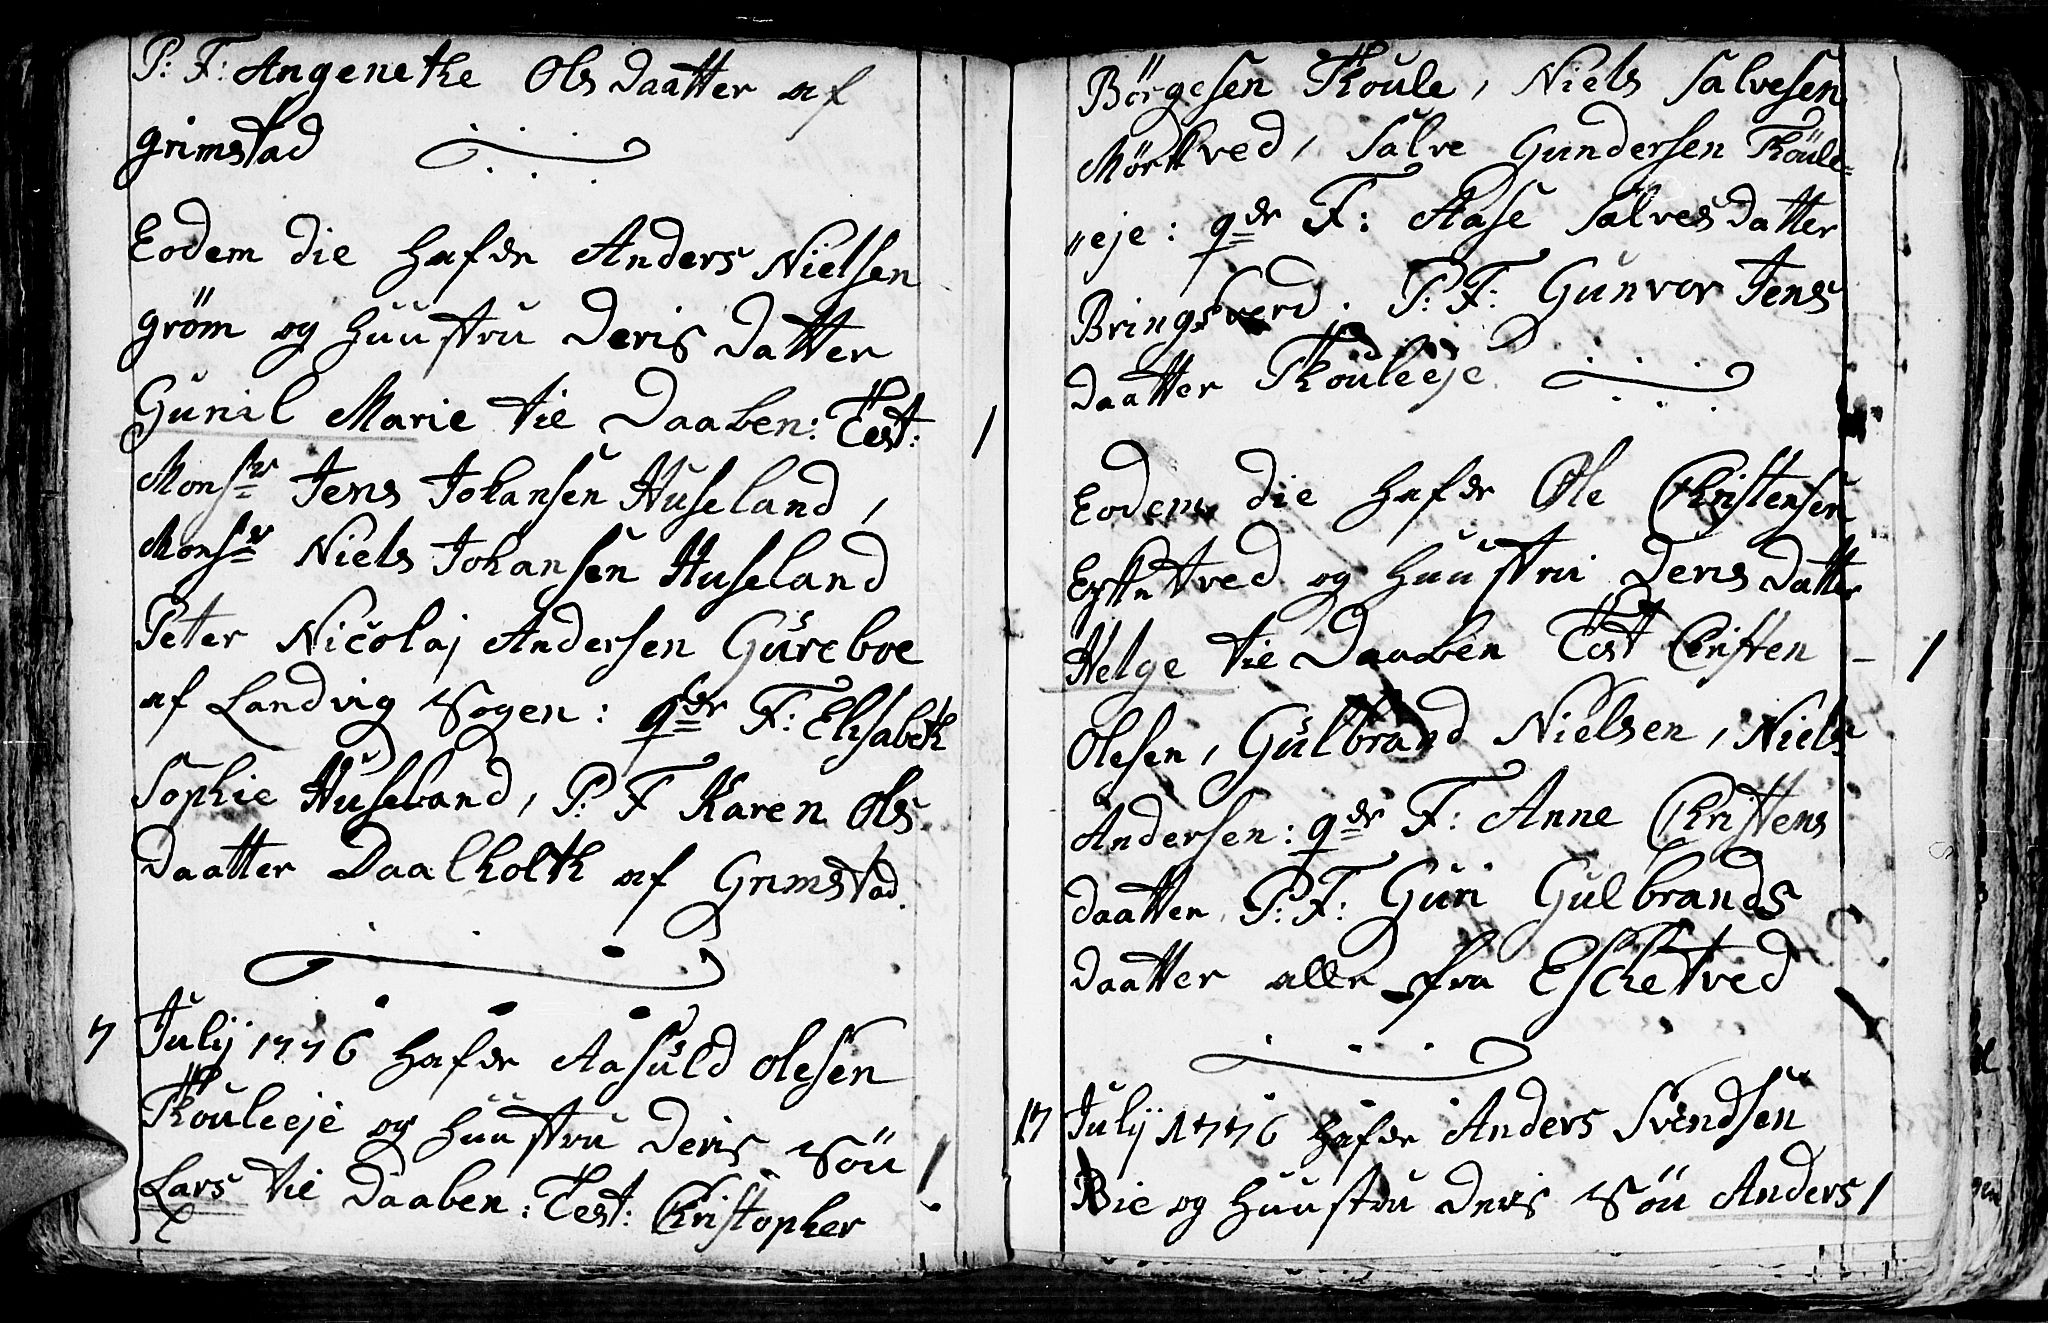 P: F: Angenethe Ols daatter af
grimstad
Eodem die hafde Anders Nielsen
gröm og huustru deris datter
Gunil Marie til daaben: Test: 1
Mons.r Jens Johansen Huseland,
Mons.r Niels Johansen Huseland
Peter Nicolaj Andersen Gureboe
af Landvig Sogen: qder F: Elisabeth
Sophie Huseland, P: F Karen Ols
daatter Daalholth af Grimstad.
7 Julij 1776 hafde Aasuld Olesen
Röuleeje og huustru deris Sön 1
Lars til daaben: Test: Christopher
Börgesen Roule, Niels Salvesen
Mörkved, Salve Gundersen Röule-
"eje: qde F: Aase Salves datter
Bringsverd. P: F: Gunvor Jens
daatter Röuleeje
Eodem die hafde Ole Christensen
og huustru deris datter
Helge til Daaben Test Christen - 1
Olesen, Gulbrand Nielsen, Niels
Andersen: qde F: Anne Christens
daatter P: F: Guri Gulbrands
daatter alle fra Eschetved
17 Julij 1776 hafde Anders Svendsen
Bie og huustru deris Sön Anders 1